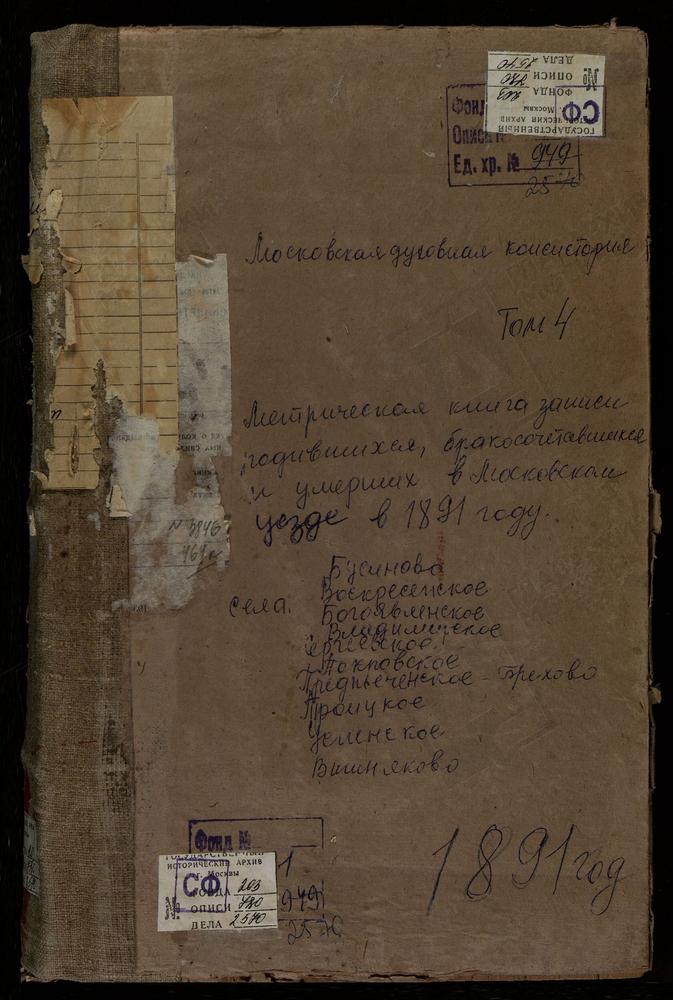 ГОСУДАРСТВЕННЫЙ
ИСТОРИЧЕСКИЙ АРХИВ
г. Москвы
СФ
ФОНДА 203
№ ОПИСИ 780
ДЕЛА 2570
Фонд
Описи №
Ед. хр. № 949
2570
Московская духовная консистория
Том 4
Метрическая книга записи
родившихся, бракосочетавшихся
и умерших в Московском
уезде в 1891 году.
Бусиново
Воскресенское
села. Богоявленское
Владимирское
Сергиевское
Покровское
Предтеченское - Грехово
Троицкое
Успенское
Вишняково
1891 год
Фонд №
1
949
2570
ГОСУДАРСТВЕННЫЙ
ИСТОРИЧЕСКИЙ АРХИВ
г. Москвы
СФ
ФОНДА 203
№ ОПИСИ 780
ДЕЛА 2570